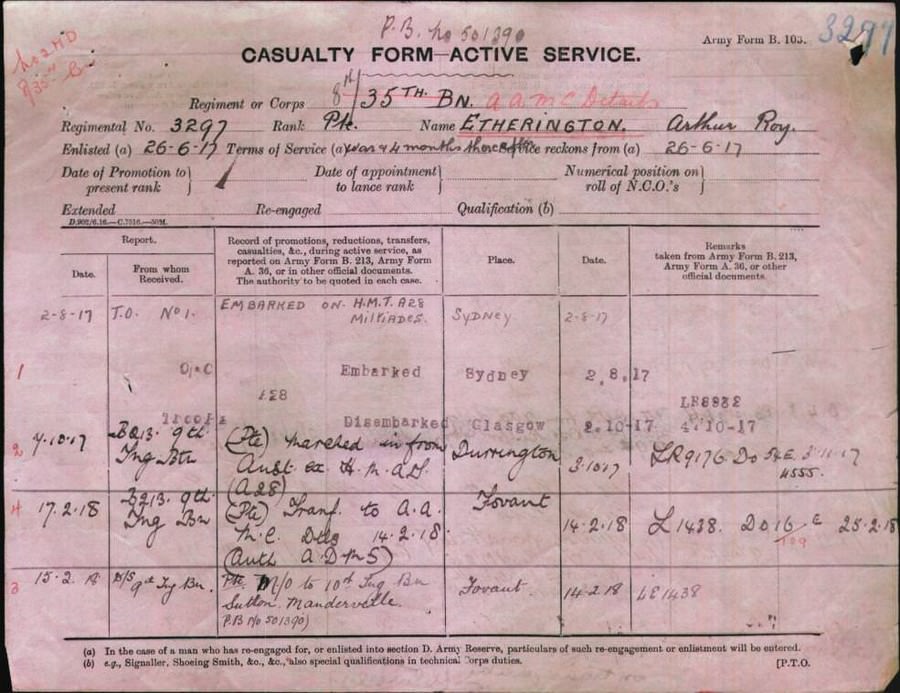 P.B. No 501390
Army Form B. 103.
3297
No 2 MD
8/35th Bn
CASUALTY FORM—ACTIVE SERVICE.
Regiment or Corps 8th/35TH. BN. A.A.M.C Details
Regimental No. 3297 Rank Pte. Name ETHERINGTON. Arthur Roy.
Enlisted (a) 26-6-17 Terms of Service (a) war & 4 months thereafter Service reckons from (a) 26-6-17
Date of Promotion to present rank } Date of appointment to lance rank } Numerical position on roll of N.C.O.'s }
Extended Re-engaged Qualification (b)
D.902/6.16.—C.7516.—50M.
Report.
Date.
From whom Received.
Record of promotions, reductions, transfers,
casualties, &c., during active service, as
reported on Army Form B. 213, Army Form
A. 36, or in other official documents.
The authority to be quoted in each case.
Place.
Date.
Remarks
taken from Army Form B. 213,
Army Form A. 36, or other
official documents.
2-8-17 T.O. No 1. EMBARKED ON H.M.T. A28 SYDNEY 2-8-17
MILTIADES.
1 O.C Embarked Sydney 2.8.17
A28
Troops Disembarked Glasgow 2.10-17 4.10-17
2 7.10.17 B213. 9th (Pte) marched in from Durrington 3.10.17 LR9176 Do 54E 3.11.17
Tng Btn Aust ex H.M.A.S. 4555.
(A28)
4 17.2.18 B213. 9th (Pte) Tranf. to A.A. Fovant 14.2.18 L1438. Do 16 E 25.2.18
Tng Bn M.C. Dtls 14.2.18. 109
(Auth A.D.M.S)
3 15.2.18 9th Tng Bn. Pte M/O to 10th Tng Bn Fovant. 14.2.18 LE1438
Sutton Manderville.
P.B No 501390)
(a) In the case of a man who has re-engaged for, or enlisted into section D. Army Reserve, particulars of such re-engagement or enlistment will be entered.
(b) e.g., Signaller, Shoeing Smith, &c., &c., also special qualifications in technical Corps duties. [P.T.O.